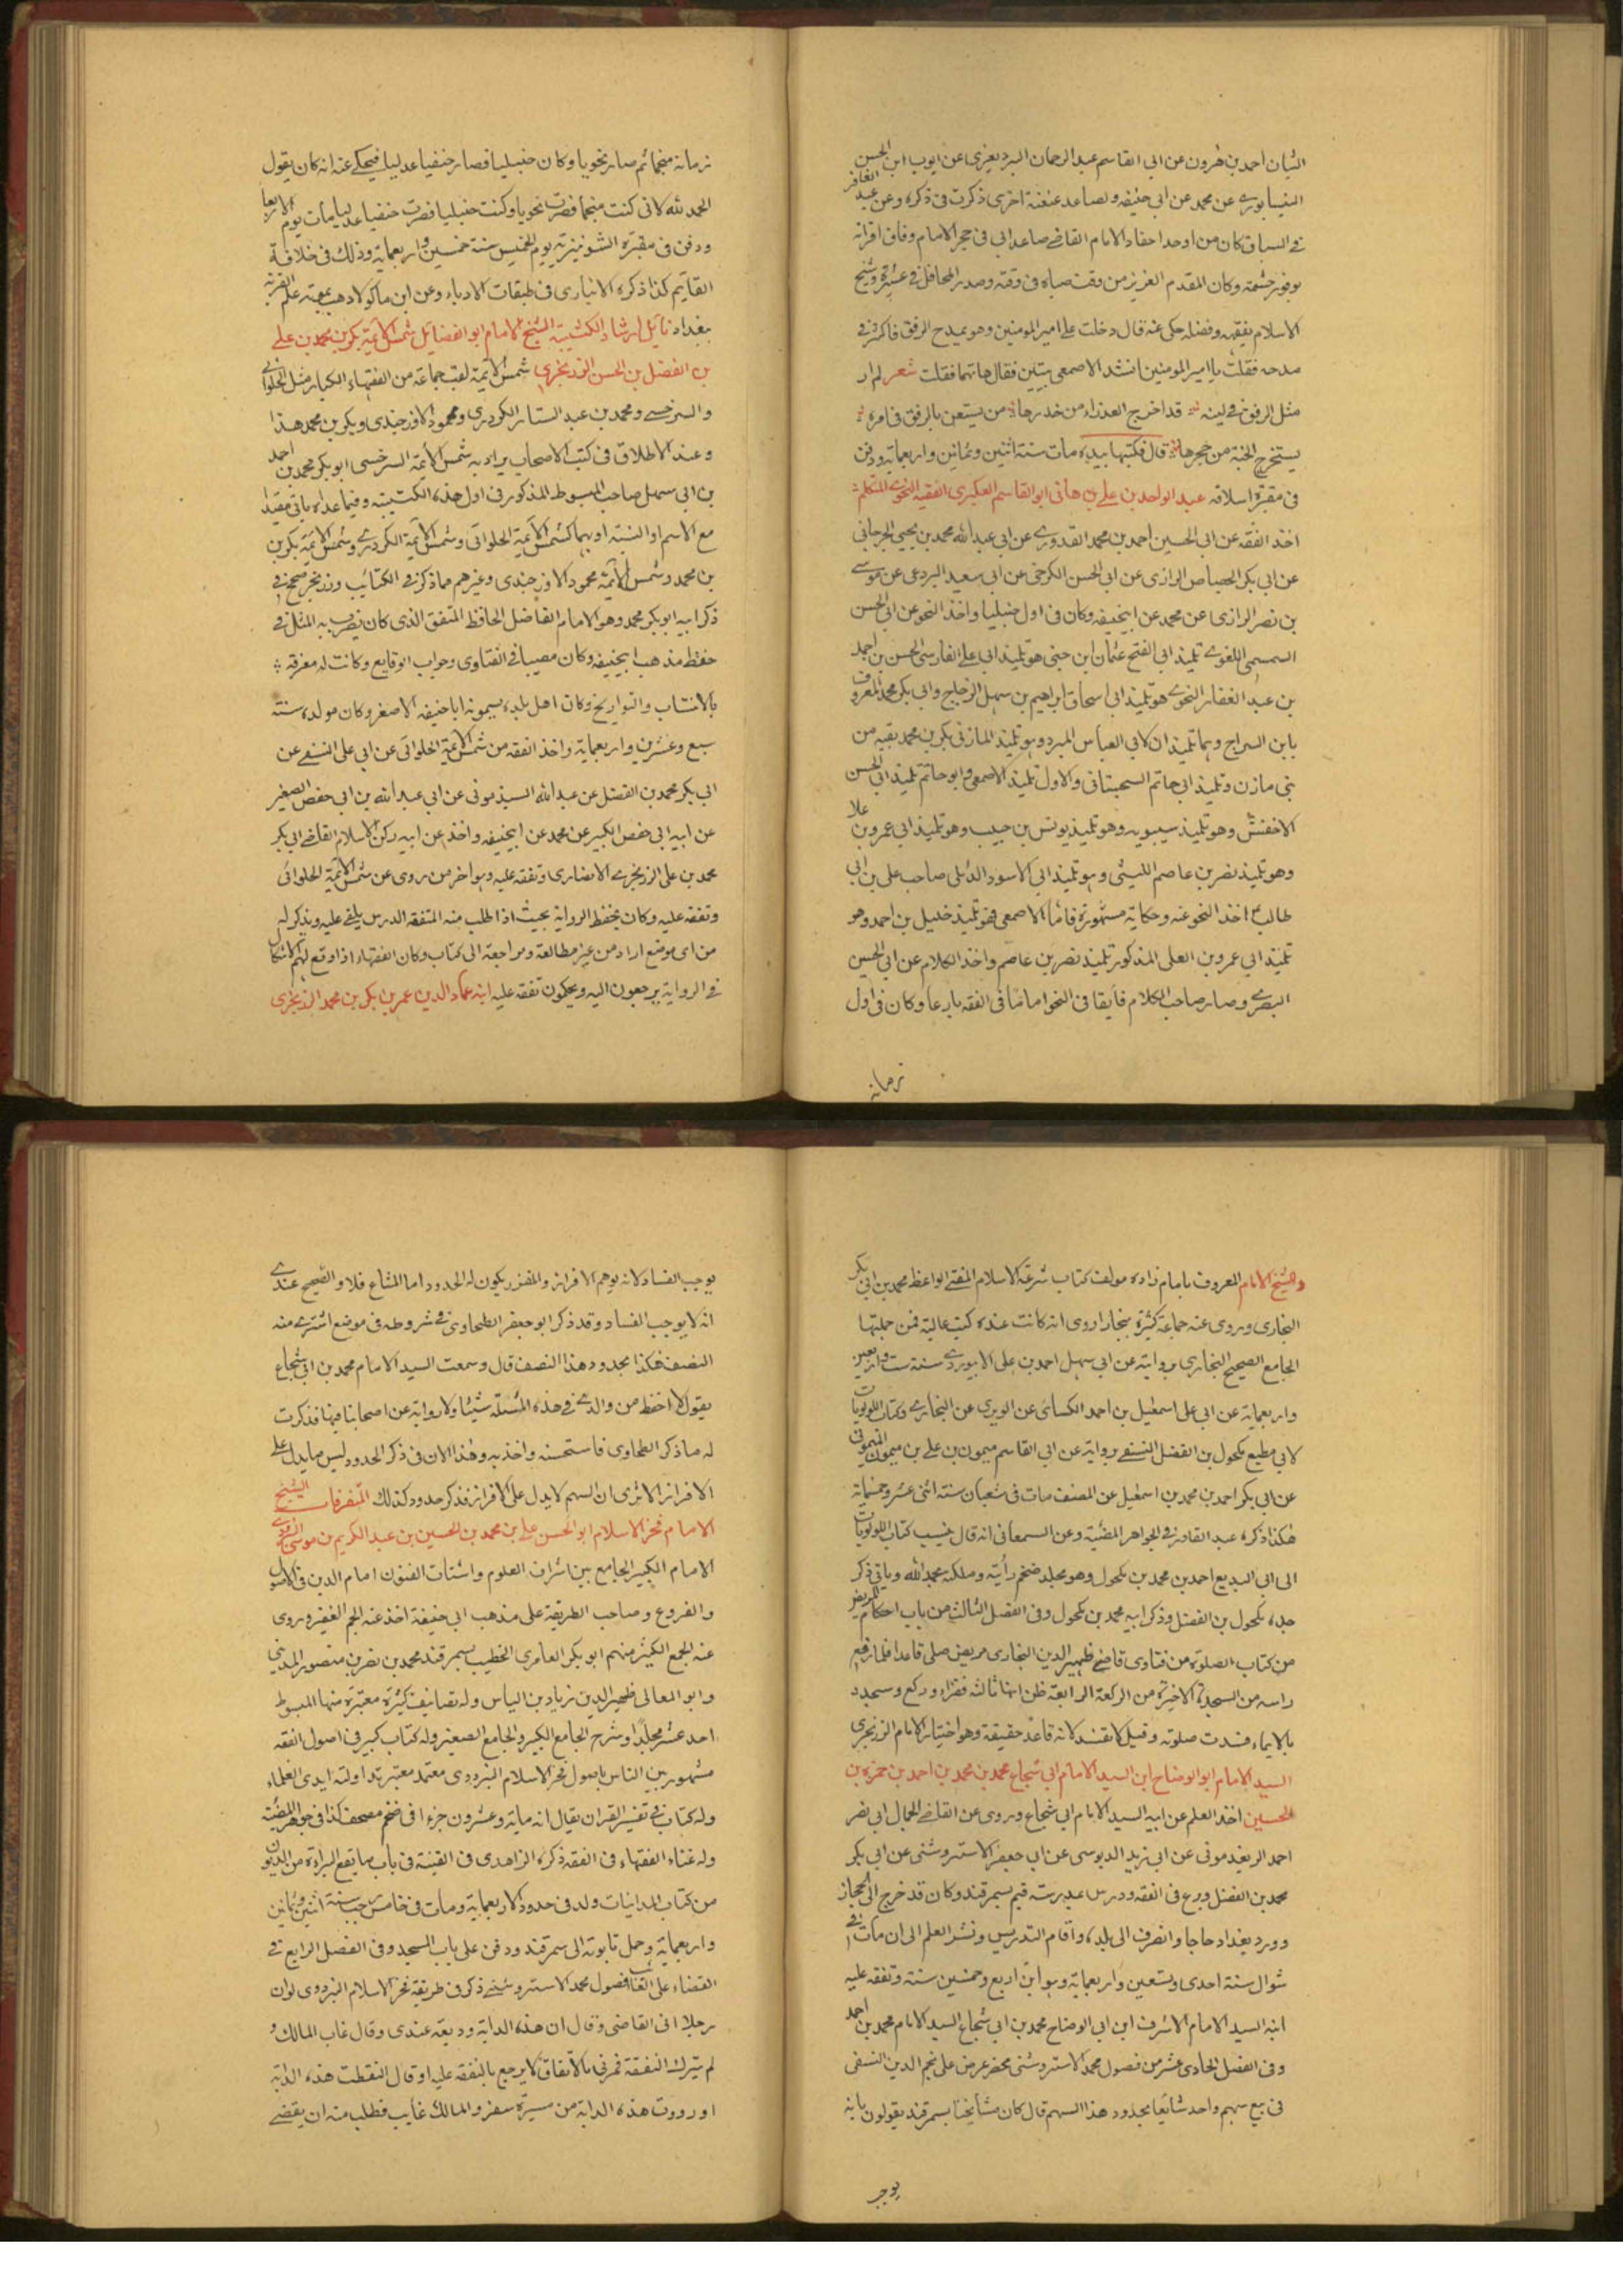 البيان احمد بن هرون عن ابي القاسم عبد الرحمان اليزديغري عن ايوب ابن الحسن
النيسابوري عن محمد عن ابي حنيفه ولصاعد عنعنة اخرى ذكرت في ذكره وعن عبد الغافر
في السياق كان من اوحد احفاد الامام القاضي صاعد ابي في حجر الامام وفاق اقرانه
بوفور حشمته وكان المقدم العزيز من وقت صباه في وقته وصدر المحافل في عشيرته وشيخ
الاسلام بفقهه وفضله حكي عنه قال دخلت على امير المومنين وهو يمدح الرفق فاكثر في
مدحه فقلت يا امير المومنين انشد الاصمعي بيتين فقال هاتهما فقلت شعر لم ار
مثل الرفق في لينه قد اخرج العذراء من خدرها من يستعن بالرفق في امره
يستخرج الحية من جحرها قال فكتبها بيده مات سنة اثنين وثمانين واربعماية ودفن
في مقبرة اسلافه عبد الواحد بن علي بن هاني ابو القاسم العكبري الفقيه النحوي المتكلم
اخذ الفقه عن ابي الحسين احمد بن محمد القدوري عن ابي عبد الله محمد بن يحيى الجرجاني
عن ابي بكر الجصاص الرازي عن ابي الحسن الكرخي عن ابي سعيد البردعي عن موسى
بن نصر الرازي عن محمد عن ابيحنيفه وكان في اول حنبليا واخذ النحو عن ابي الحسن
السمسمي اللغوي تلميذ ابي الفتح عثمان ابن جني هو تلميذ ابي علي الفارسي الحسن بن احمد
بن عبد الغفار النحوي هو تلميذ ابي اسحاق ابراهيم بن سهل الزجاج وابي بكر محمد المعروف
بابن السراج وهما تلميذان لابي العباس المبرد وهو تلميذ المازني بكر بن محمد بقيه من
بني مازن وتلميذ ابي حاتم السجستاني والاول تلميذ الاصمعي وابو حاتم تلميذ ابي الحسن
الاخفش وهو تلميذ سيبويه وهو تلميذ يونس بن حبيب وهو تلميذ ابي عمرو بن علا
وهو تلميذ نصر بن عاصم الليثي وهو تلميذ ابي الاسود الدئلي صاحب علي بن ابي
طالب اخذ النحو عنه وحكايته مشهورة فاما الاصمعي فهو تلميذ خليل بن احمد وهو
تلميذ ابي عمرو بن العلى المذكور تلميذ نصر بن عاصم واخذ الكلام عن ابي الحسين
البصري وصار صاحب الكلام فايقا في النحو اماما في الفقه بارعا وكان في اول
زمانه
زمانه منجما ثم صار نحويا وكان حنبليا فصار حنفيا عدليا فيحكى عنه انه كان يقول
الحمد لله لاني كنت منجما فصرت نحويا وكنت حنبليا فصرت حنفيا عدليا مات يوم الاربعا
ودفن في مقبرة الشونيزيه يوم الخميس سنة خمسين واربعماية وذلك في خلافة
القايم كذا ذكره الانباري في طبقات الادباء وعن ابن ماكولا ذهب بموته علم العربية
بغداد نايل ارشاد الكتيبة الشيخ الامام ابو الفضايل شمس الائمة بكر بن محمد بن علي
بن الفضل بن الحسن الزرنجري شمس الائمة لقب جماعة من الفقهاء الكبار مثل الحلواني
والسرخسي ومحمد بن عبد الستار الكردري ومحمود الاوزجندي وبكر بن محمد هذا
وعند الاطلاق في كتب الاصحاب يراد به شمس الائمة السرخسي ابو بكر محمد بن احمد
بن ابي سهل صاحب المبسوط المذكور في اول هذه الكتيبة وفيما عداه ياتي مقيدا
مع الاسم او النسبة او بهما كشمس الائمة الحلواني وشمس الائمة الكردري وشمس الائمة بكر بن
بن محمد وشمس الائمة محمود الاوزجندي وغيرهم مما ذكر في الكتائب وزرنجر صحح في
ذكر ابيه ابو بكر محمد وهو الامام الفاضل الحافظ المتفق الذي كان يضرب به المثل في
حفظ مذهب ابيحنيفه وكان مصيبا في الفتاوى وجواب الوقايع وكانت له معرفة
بالانساب والتواريخ وكان اهل بلده يسمونه ابا حنيفه الاصغر وكان مولده سنة
سبع وعشرين واربعماية واخذ الفقه من شمس الائمة الحلواني عن ابي علي النسفي عن
ابي بكر محمد بن الفضل عن عبد الله السبذموني عن ابي عبد الله بن ابي حفص الصغير
عن ابيه ابي حفص الكبير عن محمد عن ابيحنيفه واخذ عن ابيه ركن الاسلام القاضي ابي بكر
محمد بن علي الزرنجري الانصاري وتفقه عليه وهو اخر من روى عن شمس الائمة الحلواني
وتفقه عليه وكان يحفظ الرواية بحيث اذا طلب منه المتفقه الدرس يلقي عليه ويذكر له
من اي موضع اراد من غير مطالعة ومراجعة الى كتاب وكان الفقهاء اذا وقع لهم الاشكال
في الرواية يرجعون اليه ويحكمون تفقه عليه ابنه عماد الدين عمر بن بكر بن محمد الزرنجري
والشيخ الامام المعروف بامام زاده مولف كتاب شرعة الاسلام المفتي الواعظ محمد بن ابي بكر
البخاري وروى عنه جماعة كثيرة ببخارا روى انه كانت عنده كتب عالية فمن جملتها
الجامع الصحيح البخاري بروايته عن ابي سهل احمد بن علي الابيوردي سنة ست واربعين
واربعماية عن ابي علي اسمعيل بن احمد الكسائي عن الوبري عن البخاري وكتاب اللولويات
لابي مطيع مكحول بن الفضل النسفي بروايته عن ابي القاسم ميمون بن علي بن ميمون الميموني
عن ابي بكر احمد بن محمد بن اسمعيل عن المصنف مات في شعبان سنة اثني عشر وخمسماية
هكذا ذكره عبد القادر في الجواهر المضئية وعن السمعاني انه قال ينسب كتاب اللولويات
الى ابي البديع احمد بن محمد بن مكحول وهو مجلد ضخم رأيته وملكته بحمد الله وياتي ذكر
جده مكحول بن الفضل وذكر ابيه محمد بن مكحول وفي الفصل الثالث من باب احكام المريض
من كتاب الصلوة من فتاوى قاضي ظهير الدين البخاري مريض صلى قاعدا فلما رفع
راسه من السجدة الاخيرة من الركعة الرابعة ظن انها ثالثة فقراء وركع وسجد
بالايماء فسدت صلوته وقيل لا تفسد لانه قاعد حقيقة وهو اختيار الامام الزرنجري
السيد الامام ابو الوضاح ابن السيد الامام ابي شجاع محمد بن محمد بن احمد بن حمزة بن
الحسين اخذ العلم عن ابيه السيد الامام ابي شجاع وروى عن القاضي الجمال ابي نصر
احمد الريغدموني عن ابي زيد الدبوسي عن ابي جعفر الاستروشني عن ابي بكر
محمد بن الفضل وبرع في الفقه ودرس بمدرسة قثم بسمرقند وكان قد خرج الى الحجاز
وورد بغداد حاجا وانصرف الى بلده واقام التدريس ونشر العلم الى ان مات في
شوال سنة احدى وتسعين واربعماية وهو ابن اربع وخمسين سنة وتفقه عليه
ابنه السيد الامام الاشرف ابن ابي الوضاح محمد بن ابي شجاع السيد الامام محمد بن احمد
وفي الفصل الحادي عشر من فصول محمد الاستروشني محضر عرض على نجم الدين النسفي
في بيع سهم واحد شائعا بحدود هذا السهم قال كان مشايخنا بسمرقند يقولون بانه
يوجب
يوجب الفساد لانه يوهم الافراز والمفرز يكون له الحدود اما المشاع فلا والصحيح عندي
انه لا يوجب الفساد وقد ذكر ابو جعفر الطحاوي في شروطه في موضع اشترى منه
النصف هكذا بحدود هذا النصف قال وسمعت السيد الامام محمد بن ابي شجاع
يقول لا احفظ من والدي في هذه المسئلة شيئا ولا رواية عن اصحابنا فيها فذكرت
له ما ذكر الطحاوي فاستحسنه واخذ به وهذا لان في ذكر الحدود ليس ما يدل على
الافراز الا ترى ان السهم لا يدل على الافراز فذكر حدوده كذلك المتفرقات الشيخ
الامام فخر الاسلام ابو الحسن علي بن محمد بن الحسين بن عبد الكريم بن موسى البزدوي
الامام الكبير الجامع بين اشراف العلوم واشتات الفنون امام الدين في الاصول
والفروع وصاحب الطريقة على مذهب ابي حنيفة اخذ عنه الجم الغفير وروى
عنه الجمع الكثير منهم ابو بكر العامري الخطيب بسمرقند محمد بن نصر بن منصور المديني
وابو المعالي ظهير الدين زياد بن الياس وله تصانيف كثيرة معتبرة منها المبسوط
احد عشر مجلدا وشرح الجامع الكبير والجامع الصغير وله كتاب كبير في اصول الفقه
مشهور بين الناس باصول فخر الاسلام البزدوي معتمد معتبر تداولته ايدي العلماء
وله كتاب في تفسير القران يقال انه ماية وعشرون جزءا في ضخم مصحف كذا في جواهر المضيئة
وله غناء الفقهاء في الفقه ذكره الزاهدي في القنية في باب ما يقع البراءة من الديون
من كتاب المداينات ولد في حدود الاربعماية ومات في خامس رجب سنة اثنين وثمانين
واربعماية وحمل تابوته الى سمرقند ودفن على باب المسجد وفي الفصل الرابع في
القضاء على الغائب فصول محمد الاستروشني ذكر في طريقة فخر الاسلام البزدوي لو ان
رجلا اتى القاضي وقال ان هذه الدابة وديعة عندي وقال غاب المالك و
لم يترك النفقة فمرني بالانفاق لا يرجع بالنفقة عليه او قال التقطت هذه الدابة
او رددت هذه الدابة من مسيرة سفر والمالك غايب فطلب منه ان يقضي